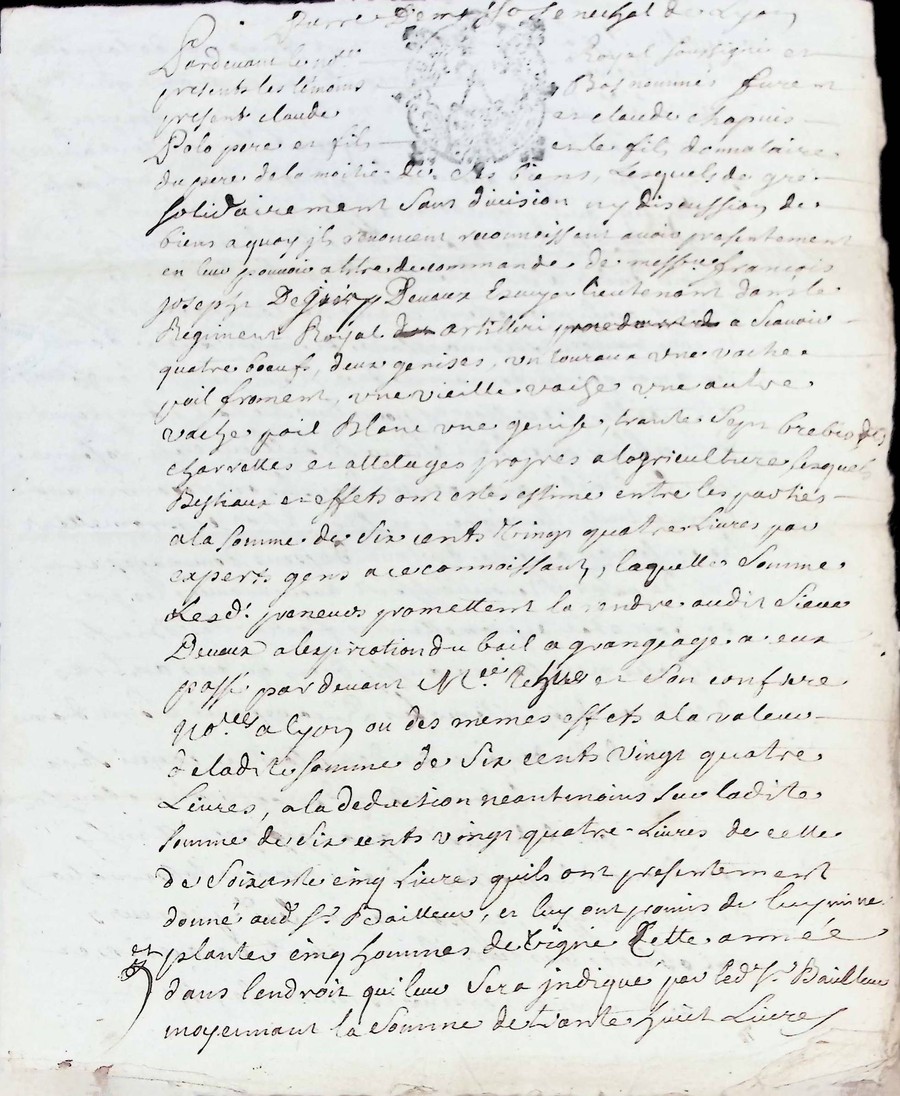 Senechal de Lyon
Pardevant le no.re Royal soussigné et
presents les témoins Bas nommés furent
present claude et claude chapuis
Palo pere et fils et le fils donnataire
du pere de la moitié de ses biens, Lesquels de gré
solidairement sans division ny discussion de
biens a quoy jls renoncent reconnoissent avoir presentement
en leur pouvoir a titre de commande de mess.re françois
joseph Devaux Ecuyer lieutenant dans le
Regiment Royal artilleri a Scavoir
quatre boeufs, deux genises, un toureau une vache
poil froment, une vieille vache une autre
vache poil Blanc une genise, trante Sept brebis, des
charrettes et attelages propres a lagriculture lesquels
Bestiaux et effets ont estes estimé entre les parties
a la somme de Six cents vingt quatre Livres par
experts gens a ce connoissant, laquelle Somme
Lesd. preneurs promettent la rendre audit Sieur
Devaux a lexpiration du bail a grangeage a eux
passé par devant M.e et Son confrere
no.res a Lyon ou des memes effets a la valeur
de ladite somme de Six cents vingt quatre
Livres, a la deduction neantmoins sur ladite
somme de Six cents vingt quatre Livres de celle
de Soixante cinq Livres quils ont presentement
donné aud. Sr. Bailleur, et luy ont promis de
et planter cinq hommes de vigne Cette année
dans lendroit qui leur Sera jndiqué par led. Sr. Bailleur
moyennant la Somme de trante huit Livres